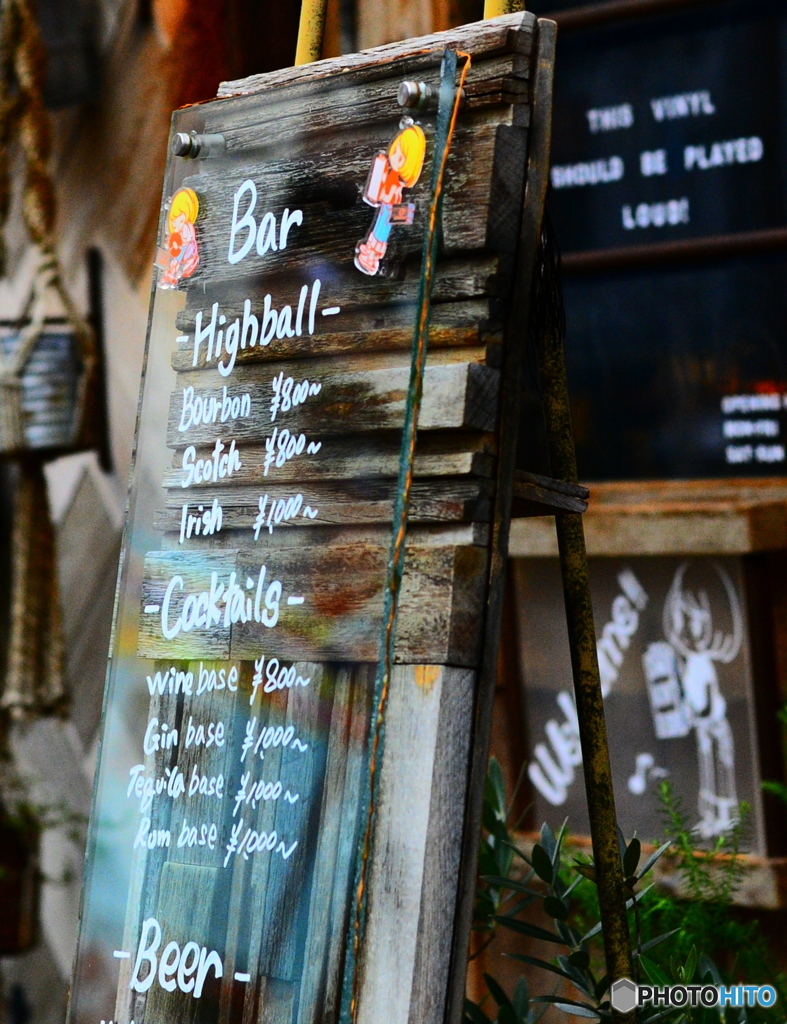 Bar
-Highball-
Bourbon ¥800~
Scotch ¥800~
Irish ¥1,000~
-Cocktails-
wine base ¥800~
Gin base ¥1,000~
Tequila base ¥1,000~
Rum base ¥1,000~
-Beer-
THIS VINYL
SHOULD BE PLAYED
LOUD!
OPENING
MON-FRI
SAT SUN
PHOTOHITO